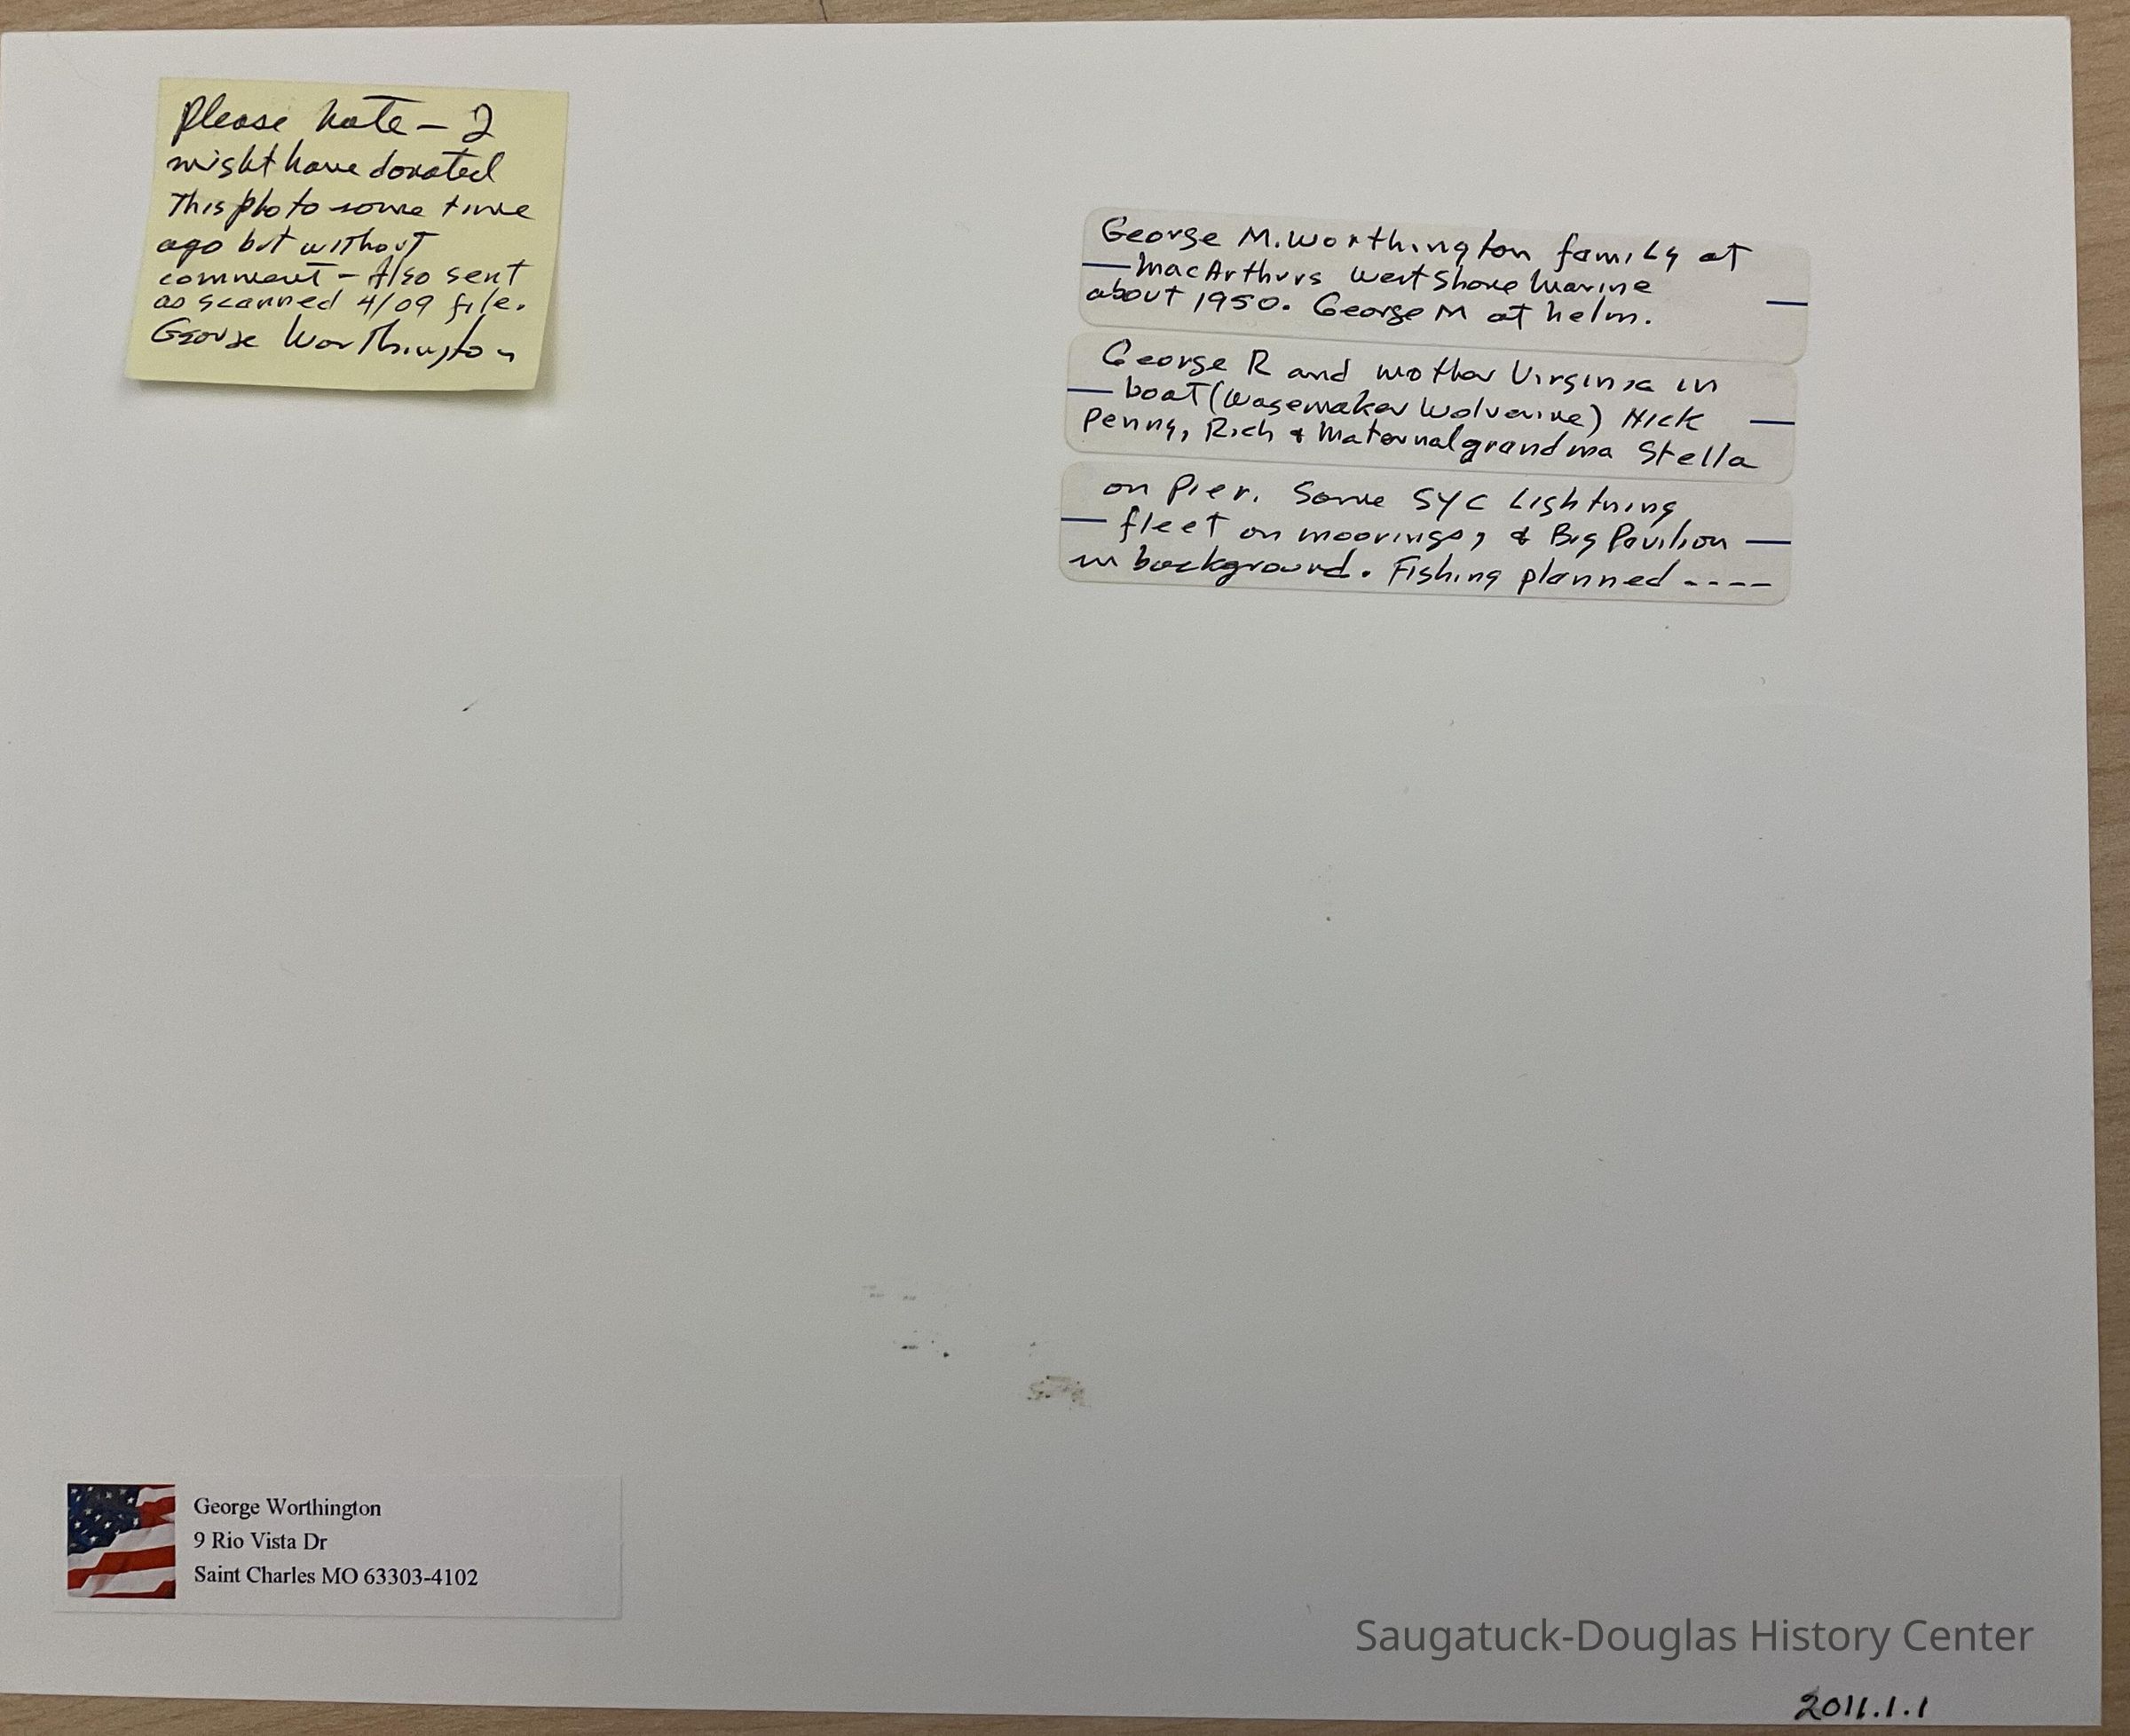 Please note - I
might have donated
This photo some time
ago but without
comment - Also sent
as scanned 4/09 file.
George Worthington
George M. Worthington family at
MacArthurs West Shore Marine
about 1950. George M at helm.
George R and mother Virginia in
boat (Wagemaker Wolverine) Nick
Penny, Rich & Maternal grandma Stella
on Pier. Some SYC Lightning
fleet on moorings, & Big Pavilion
in background. Fishing planned ----
George Worthington
9 Rio Vista Dr
Saint Charles MO 63303-4102
Saugatuck-Douglas History Center
2011.1.1